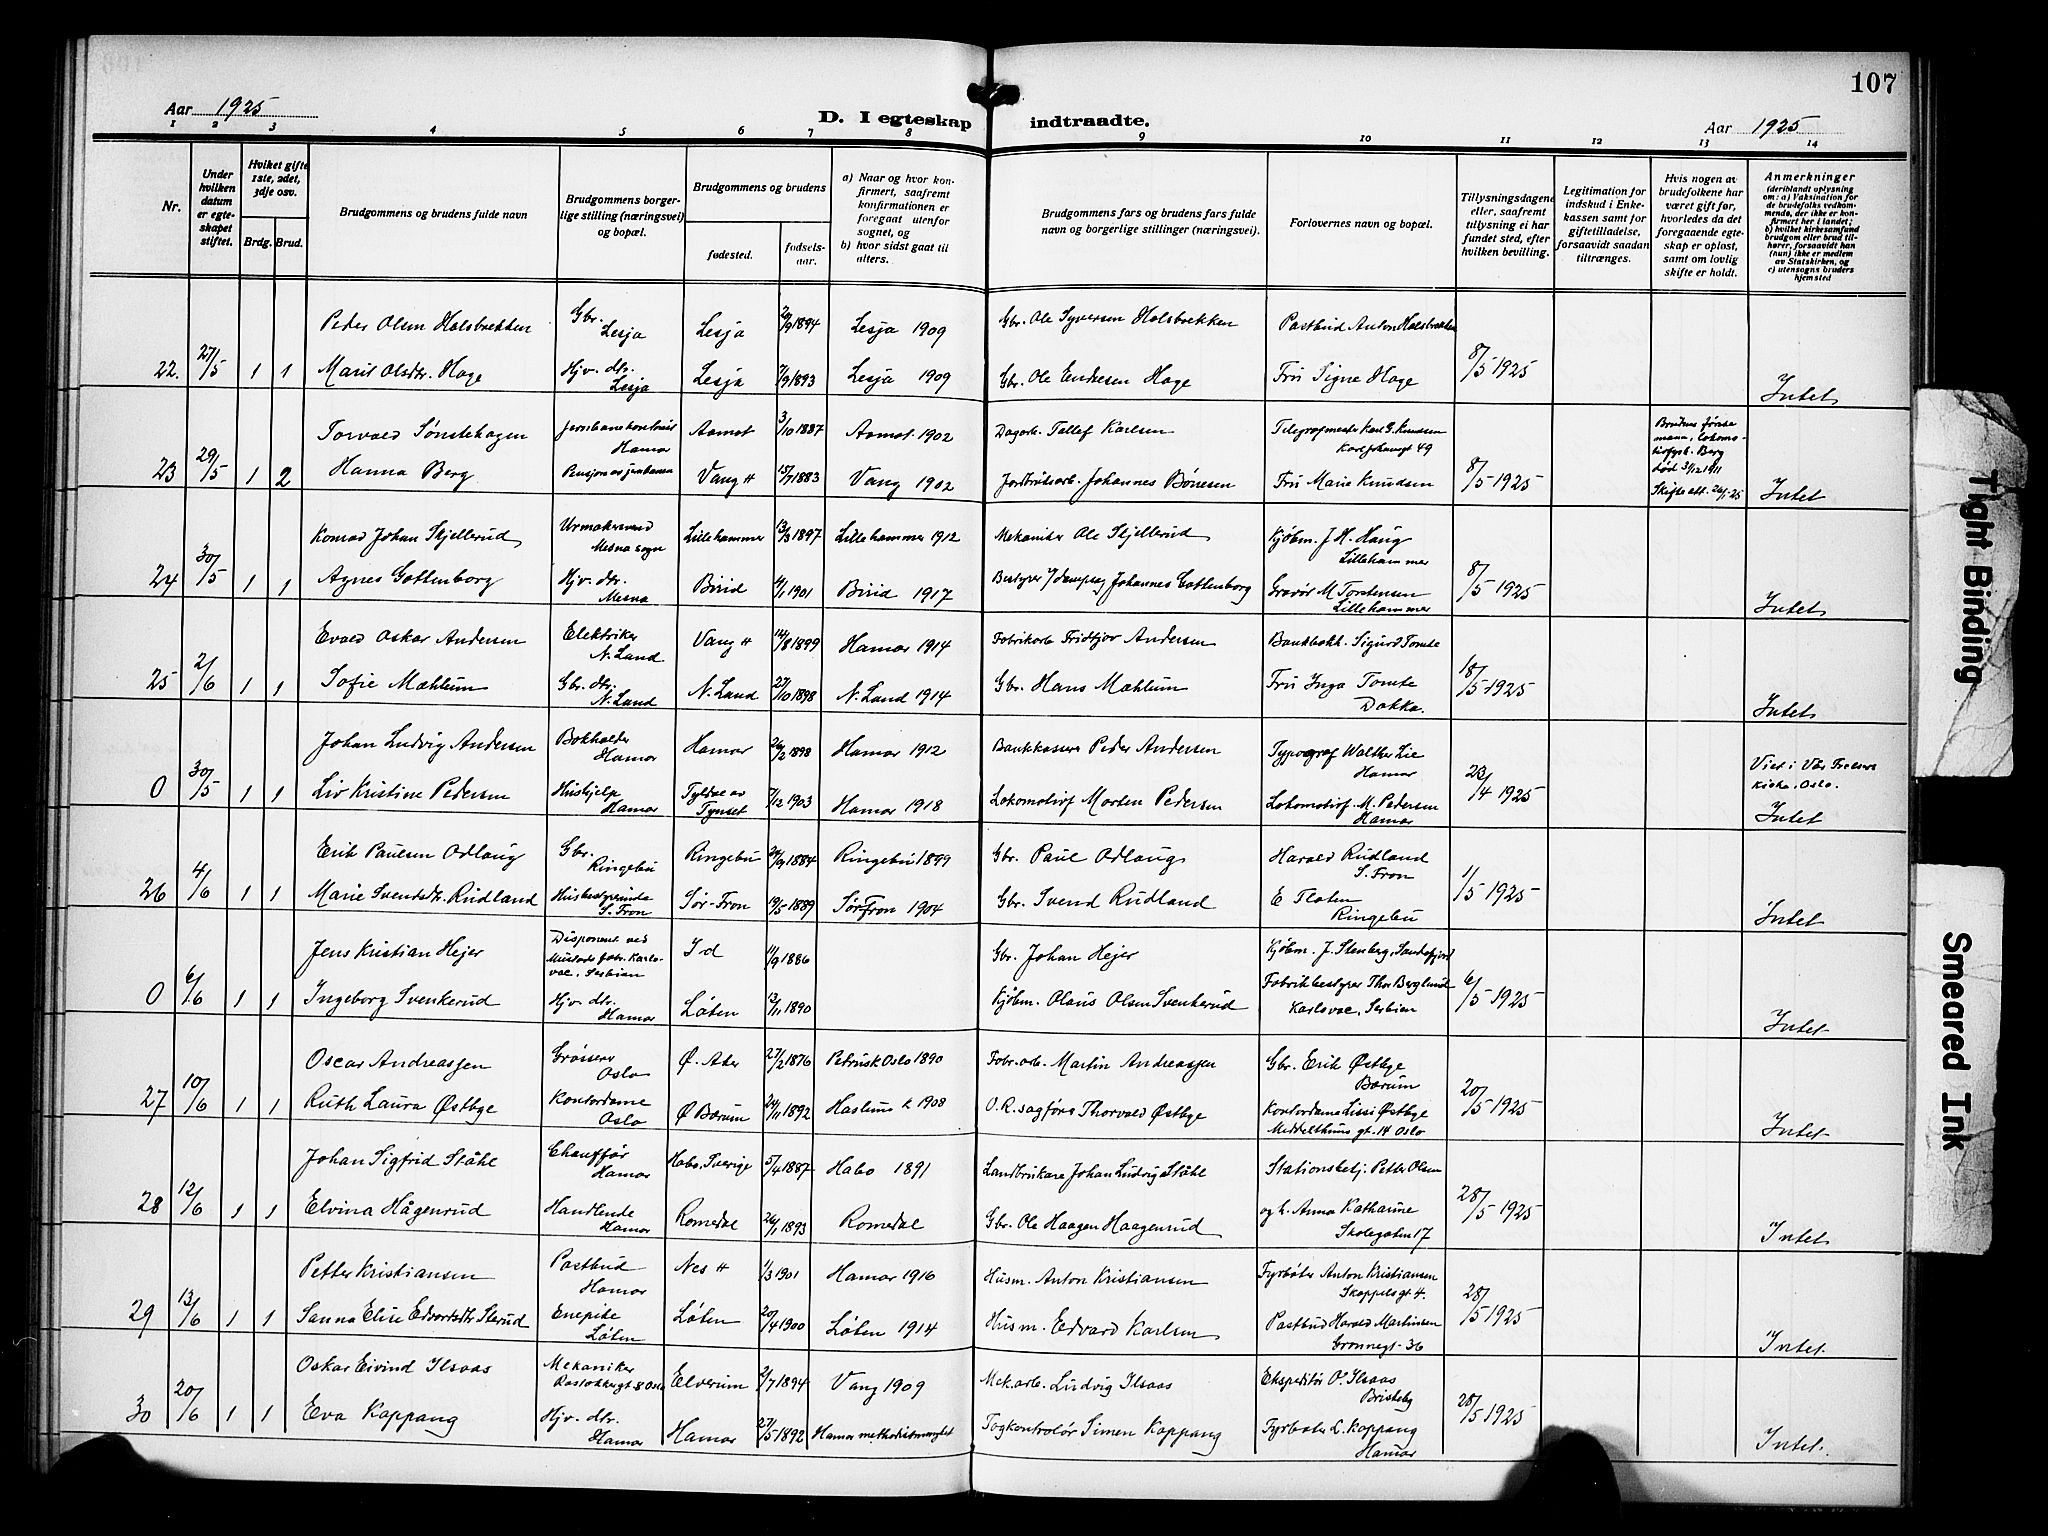 107
Aar 1925
D. I egteskap indtraadte.
Aar 1925
1 2 3 4 5 6 7 8 9 10 11 12 13 14
Nr.
Under hvilken datum er egteskapet stiftet.
Hviket gifte 1ste, 2det, 3dje osv.
Brdg. Brud.
Brudgommens og brudens fulde navn
Brudgommens borgerlige stilling (næringsvei) og bopæl.
Brudgommens og brudens
fødested.
fødselsaar.
a) Naar og hvor konfirmert, saafremt konfirmationen er foregaat utenfor sognet, og
b) hvor sidst gaat til alters.
Brudgommens fars og brudens fars fulde navn og borgerlige stillinger (næringsvei).
Forlovernes navn og bopæl.
Tillysningsdagene eller, saafremt tillysning ei har fundet sted, efter hvilken bevilling.
Legitimation for indskud i Enkekassen samt for giftetilladelse, forsaavidt saadan tiltrænges.
Hvis nogen av brudefolkene har været gift før, hvorledes da det foregaaende egteskap er opløst, samt om lovlig skifte er holdt.
Anmerkninger
(deriblandt oplysning om: a) Vaksination for de brudefolks vedkommende, der ikke er konfirmert her i landet; b) hvilket kirkesamfund brudgom eller brud tilhører, forsaavidt han (hun) ikke er medlem av Statskirken, og c) utensogns bruders hjemsted
Peder Olsen Holsbrekken Gbr. Lesja Lesja 2/9 1894 Lesja 1909 Gbr. Ole Syversen Holsbrekken Postbud Anton Holsbrekken
22. 27/5 1 1 Marit Olsdtr. Hage Hjv. dtr. Lesja Lesja 7/9 1893 Lesja 1909 Gbr. Ole Endresen Hage Fru Signe Hage 8/5 1925 Intet
Torvald Sønstehagen Hamar Aamot 3/10 1887 Aamot 1902 Dagarb. Tallef Karlsen Telegrafmester Karl G. Knudsen 49
23 29/5 1 2 Hanna Berg Vang H 15/7 1883 Vang 1902 Johannes Bønesen Fru Marie Knudsen 8/5 1925 Brudens første mann, Berg død 3/12 1911 Skifteatt. 26/1-25 Intet
Konrad Johan Skjellerud Urmakersvend Mesna sogn Lillehammer 13/3 1897 Lillehammer 1912 Mekaniker Ole Skjellerud Kjøbm. J. H. Haug Lillehammer
24 30/5 1 1 Agnes Gottenborg Hjv. dtr. Mesna Birid 4/1 1901 Birid 1917 Johannes Gottenborg Gravør M. Torstensen Lillehammer 8/5 1925 Intet
Evald Oskar Andersen Elektriker N. Land Vang H 14/8 1899 Hamar 1914 Fabrikarb. Fridtjov Andersen Bankbokh. Sigurd Tomte
25 2/6 1 1 Sofie Mæhlum Gbr. dtr. N. Land N. Land 27/10 1898 N. Land 1914 Gbr. Hans Mæhlum Fru Inga Tomte Dokka. 18/5 1925 Intet
Johan Ludvig Andersen Bokholder Hamar Hamar 26/2 1898 Hamar 1912 Bankkasserer Peder Andersen Typograf Walther Lie Hamar
0 30/5 1 1 Liv Kristine Pedersen Hushjelp Hamar Tyldal av Tynset 7/12 1903 Hamar 1918 Lokomotivf. Morten Pedersen Lokomotivf. M. Pedersen Hamar 23/4 1925 Viet i Vår Frelsers kirke, Oslo. Intet
Erik Paulsen Odlaug Gbr. Ringebu Ringebu 24/9 1884 Ringebu 1899 Gbr. Paul Odlaug Harald Rudland S. Fron
26 4/6 1 1 Marie Svendsdtr. Rudland Husbestyrerinde S. Fron Sør-Fron 19/5 1889 Sør Fron 1904 Gbr. Svend Rudland E Floten Ringebu 1/5 1925 Intet
Jens Kristian Hejer Disponent ved Mustads fabr. Karlovac, Serbien Id 11/9 1886 Gbr. Johan Hejer Kjøbm. J. Stenberg, Sandefjord
0 6/6 1 1 Ingeborg Svenkerud Hjv. dtr. Hamar Løten 13/11 1890 Kjøbm. Olaus Olsen Svenkerud Fabrikbestyrer Thor Berglund Karlovac, Serbien 6/5 1925 Intet
Oscar Andreassen Grosserer Oslo Ø. Aker 27/2 1876 Petrusk Oslo 1890 Fabr. arb. Martin Andreassen Gbr. Erik Østbye Bærum
27 10/6 1 1 Ruth Laura Østbye Kontordame Oslo Ø Bærum 24/11 1892 Haslum k 1908 O.R. sagfører Thorvald Østbye Kontordame Lissi Østbye Middelthuns gt. 14 Oslo 20/5 1925 Intet
Johan Sigfrid Ståhl Chauffør Hamar Habo, Sverige 5/4 1887 Habo 1891 Landbrukare Johan Ludvig Ståhl Stationsbetj. Petter Olsen
28 12/6 1 1 Elvina Hågenrud Handlende Hamar Romedal 26/1 1893 Romedal Gbr. Ole Haagen Haagenrud og h. Anna Katharine Skolegaten 17 28/5 1925 Intet
Petter Kristiansen Postbud Hamar Nes H 1/3 1901 Hamar 1916 Husm. Anton Kristiansen Fyrbøter Anton Kristiansen Skappels gt 4.
29 13/6 1 1 Sanna Elise Edvardsdtr. Enepike Løten Løten 20/4 1900 Løten 1914 Husm. Edvard Karlsen Postbud Harald Martinsen Grønnegt. 36 28/5 1925 Intet.
Oskar Eivind Ilsaas Mekaniker Oslo Elverum 2/7 1894 Vang 1909 Mek. arb. Ludvig Ilsaas Ekspeditør O. Ilsaas
30 20/6 1 1 Eva Koppang Hjv. dtr. Hamar Hamar 27/5 1892 Hamar Togkontrolør Simen Koppang Fyrbøter L. Koppang Hamar 28/5 1925 Intet.
Tight Binding
Smeared Ink